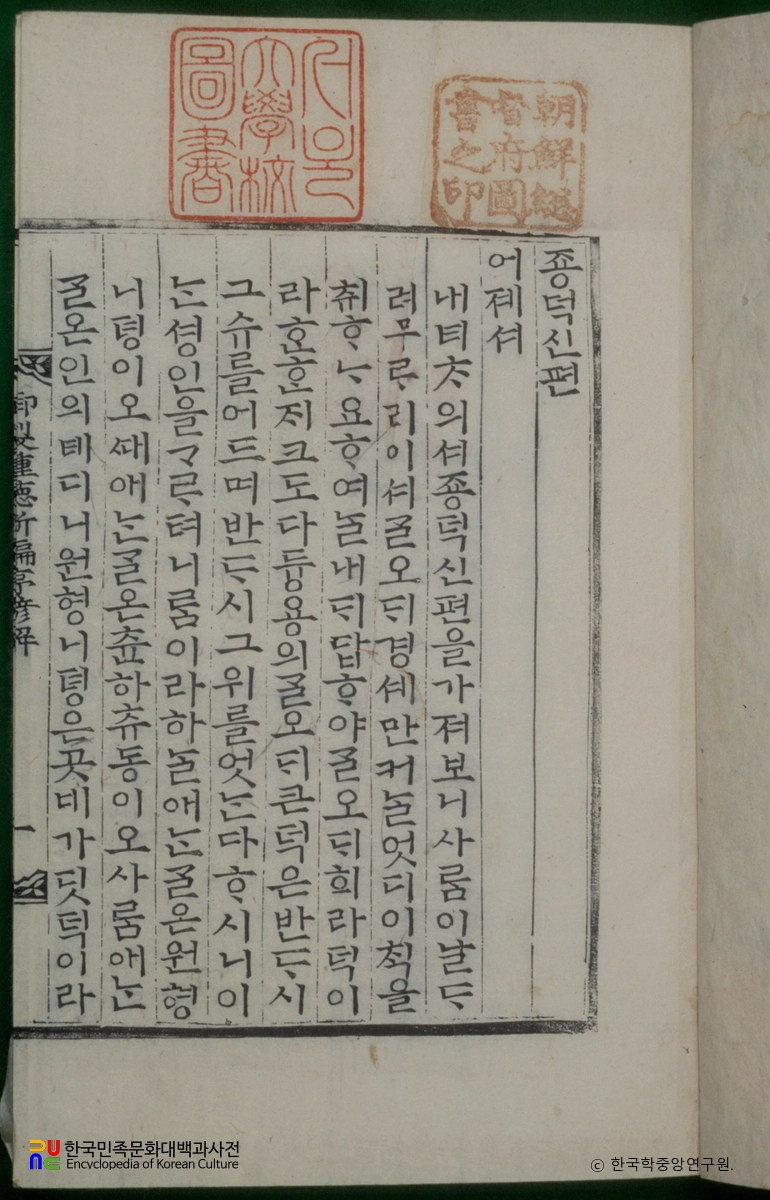 서울大學校圖書
朝鮮總督府圖書之印
죵덕신편
어졔셔
내티ᄎᆞ의셔죵덕신편을가져보니사ᄅᆞᆷ이날ᄃᆞ
려무ᄅᆞ리이셔ᄀᆞᆯ오ᄃᆡ경셰만커ᄂᆞᆯ엇디이ᄎᆡᆨ을
취ᄒᆞᄂᆞ요ᄒᆞ여ᄂᆞᆯ내ᄃᆡ답ᄒᆞ야ᄀᆞᆯ오ᄃᆡ희라덕이
라크도다듕용의ᄀᆞᆯ오ᄃᆡ큰덕은반ᄃᆞ시
그슈를어드며반ᄃᆞ시그위를엇ᄂᆞᆫ다ᄒᆞ시니이
ᄂᆞᆫ셩인을ᄀᆞᄅᆞ텨니ᄅᆞᆷ이라하ᄂᆞᆯ애ᄂᆞᆫᄀᆞᆯ온원형
니뎡이오ᄯᅢ애ᄂᆞᆫᄀᆞᆯ온츈하츄동이오사ᄅᆞᆷ애ᄂᆞᆫ
ᄀᆞᆯ온인의톄디니원형니뎡은곳네가딧덕이라
御製種德新編序諺解
一
한국민족문화대백과사전
Encyclopedia of Korean Culture
ⓒ 한국학중앙연구원.